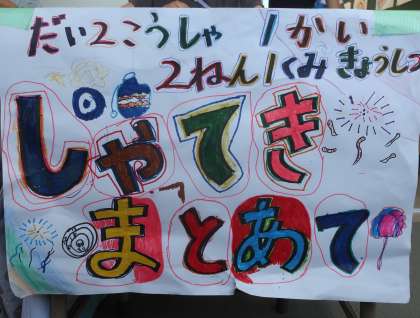 だい2こうしゃ 1かい
2ねん1くみ きょうしつ
しゃてき
まとあて